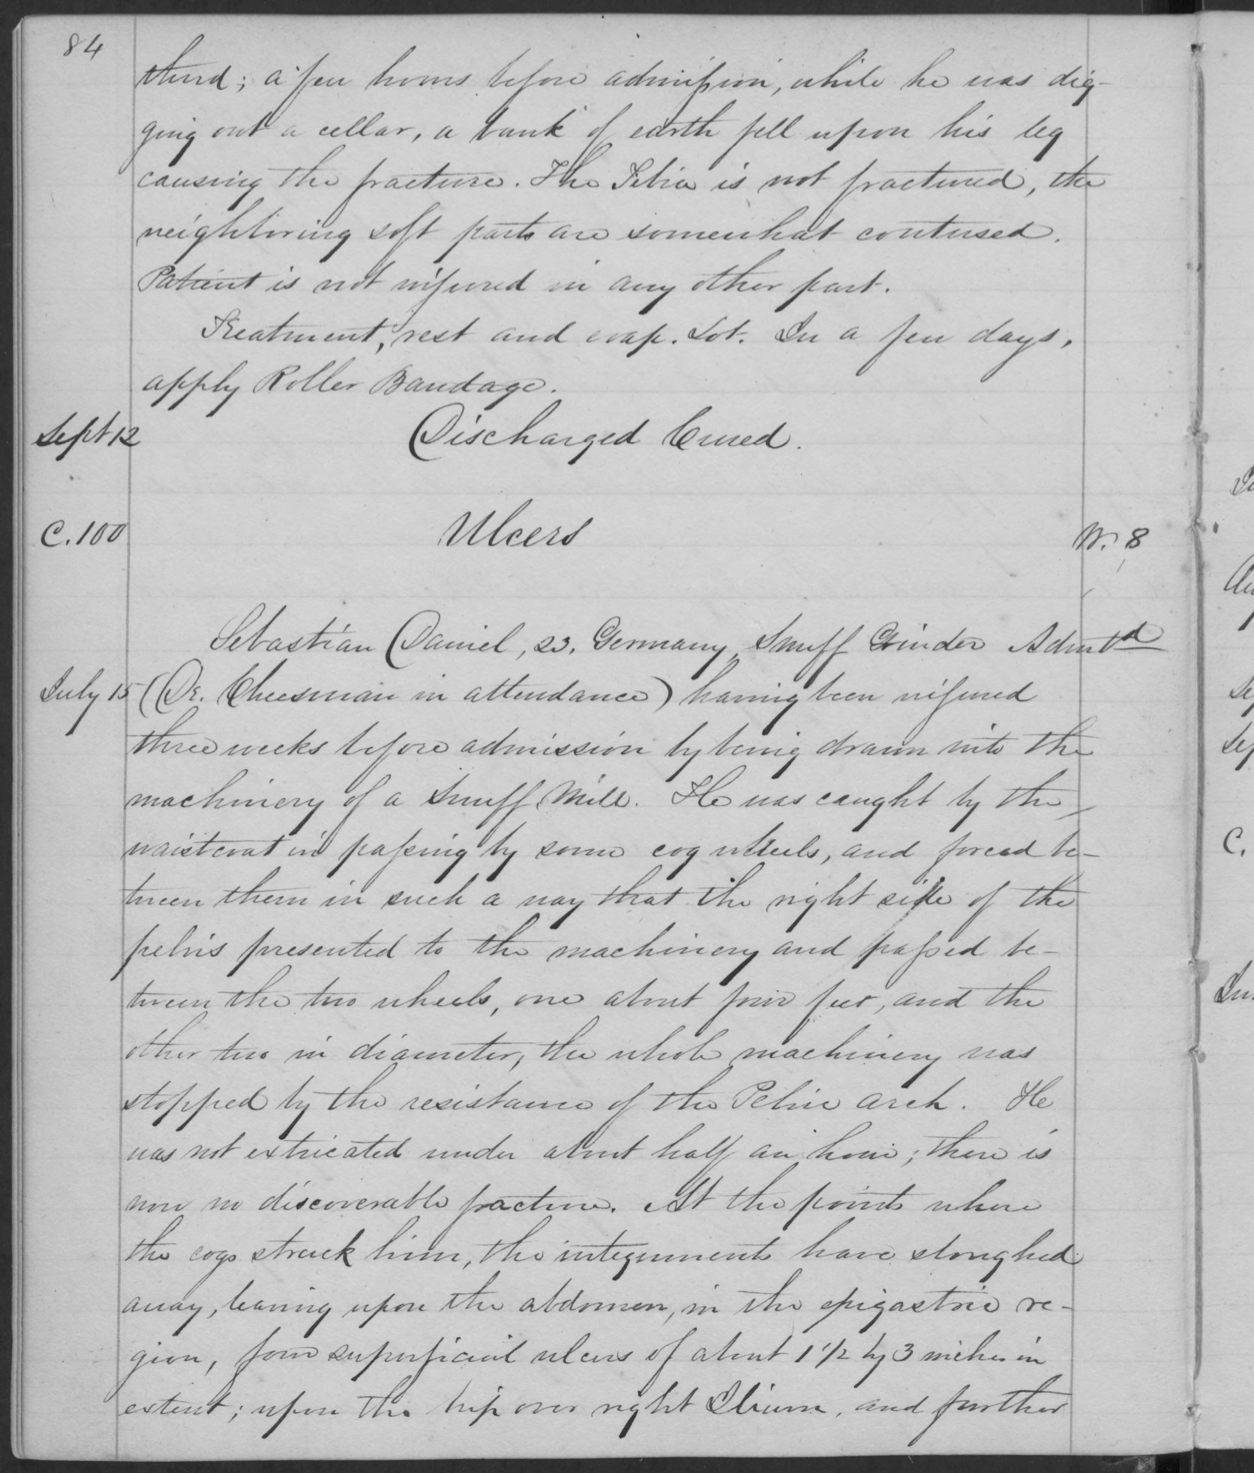 84
third; a few hours before admission, while he was dig-
ging out a cellar, a bank of earth fell upon his leg
causing the fracture. The Tibia is not fractured, the
neighboring soft parts are somewhat contused.
Patient is not injured in any other part.
Treatment, rest and evap. Lot. In a few days,
apply Roller Bandage.
Sept 12 Discharged Cured.
C. 100 Ulcers N. 8
Sebastian Daniel, 23, Germany, Snuff Grinder Admtd
July 15 (Dr. Cheesman in attendance) having been injured
three weeks before admission by being drawn into the
machinery of a Snuff Mill. He was caught by the
waistcoat in passing by some cog wheels, and forced be-
tween them in such a way that the right side of the
pelvis presented to the machinery and passed be-
tween the two wheels, one about four feet, and the
other two in diameter, the whole machinery was
stopped by the resistance of the Pelvic arch. He
was not extricated under about half an hour; there is
now no discoverable fracture. At the points where
the cogs struck him, the integuments have sloughed
away, leaving upon the abdomen, in the epigastric re-
gion, four superficial ulcers of about 1 1/2 by 3 inches in
extent; upon the hip over right Ilium, and further